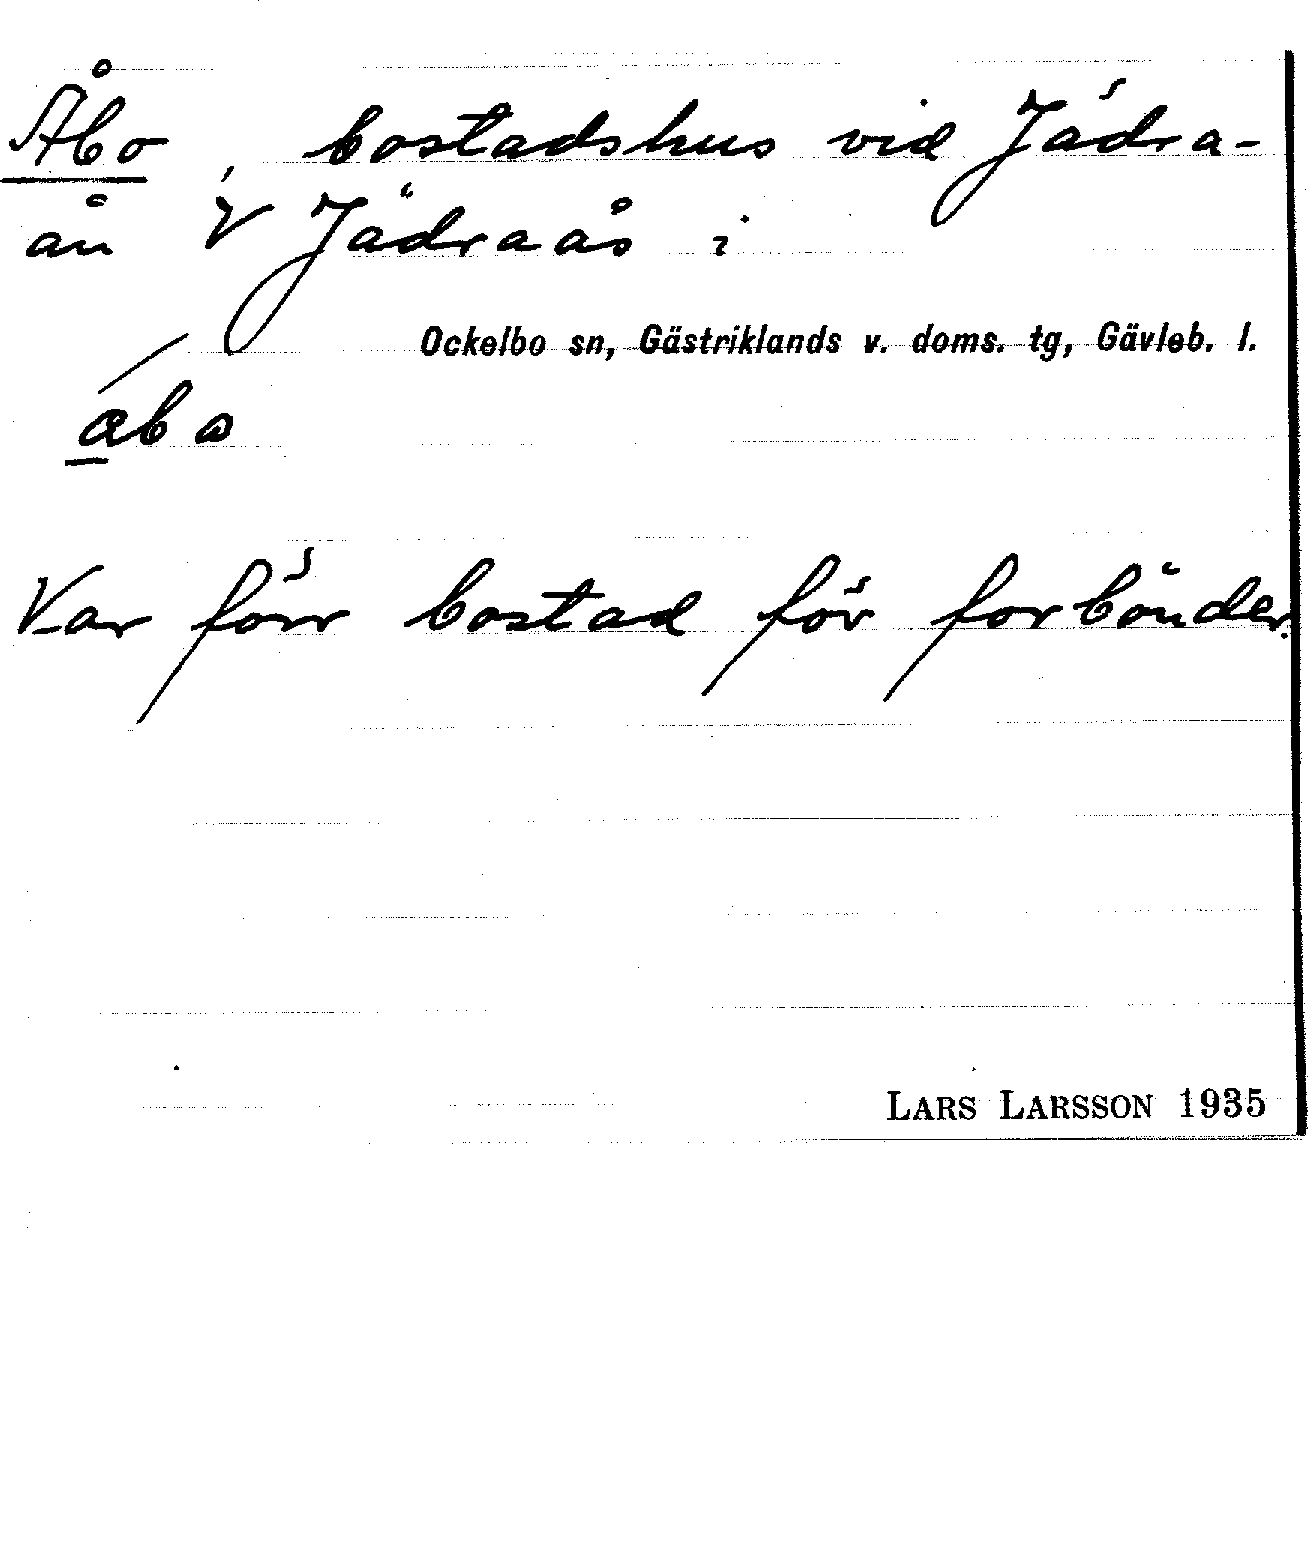 Åbo, bostadshus vid Jädra-
ån V Jädraås i
Ockelbo sn, Gästriklands v. doms. tg, Gävleb. l.
Var förr bostad för forbönder.
LARS LARSSON 1935